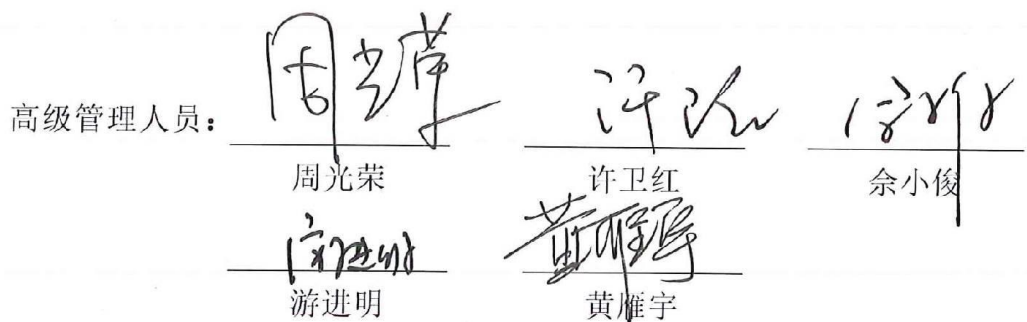 高级管理人员：
周光荣 许卫红 佘小俊
游进明 黄雁宇